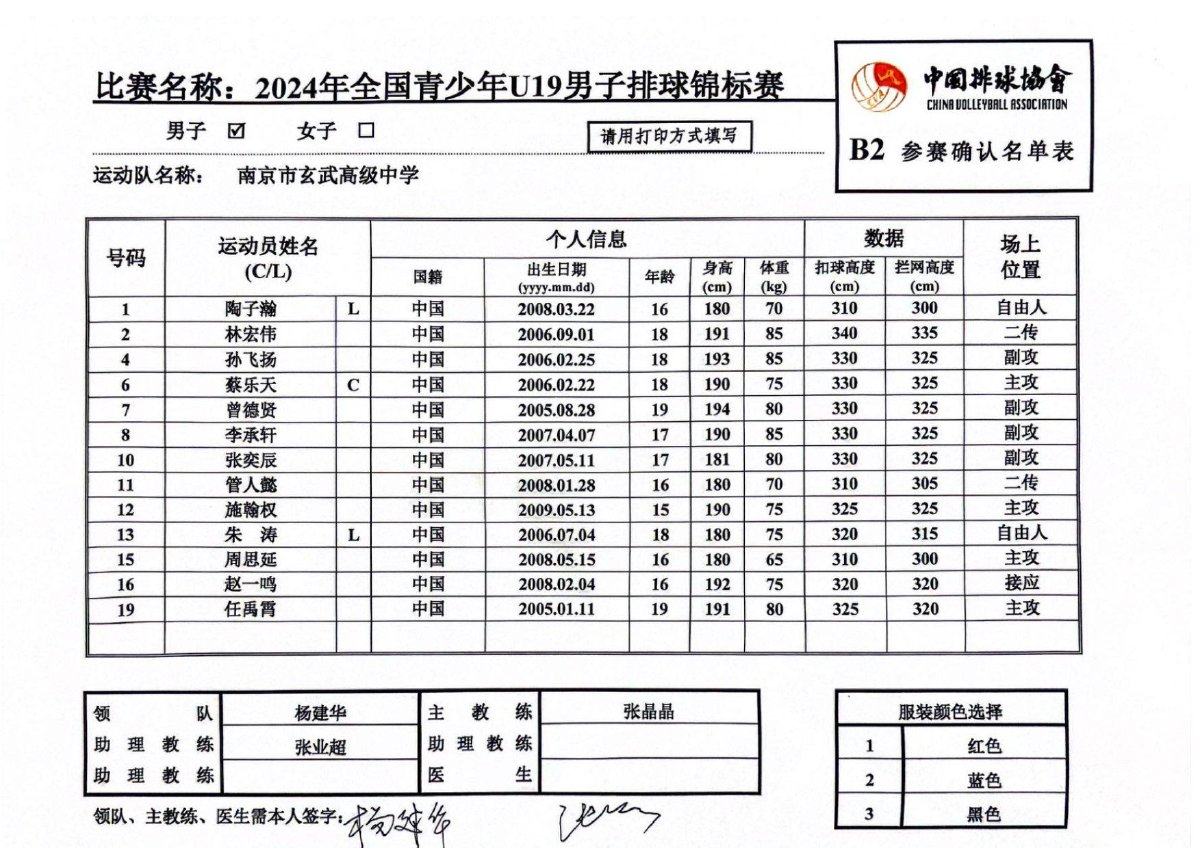 比赛名称：2024年全国青少年U19男子排球锦标赛
中国排球协會
CHINA VOLLEYBALL ASSOCIATION
B2 参赛确认名单表
男子 ☑ 女子 □ 请用打印方式填写
运动队名称： 南京市玄武高级中学
号码 运动员姓名 (C/L) 个人信息 数据 场上位置
国籍 出生日期 (yyyy.mm.dd) 年龄 身高 (cm) 体重 (kg) 扣球高度 (cm) 拦网高度 (cm)
1 陶子瀚 L 中国 2008.03.22 16 180 70 310 300 自由人
2 林宏伟 中国 2006.09.01 18 191 85 340 335 二传
4 孙飞扬 中国 2006.02.25 18 193 85 330 325 副攻
6 蔡乐天 C 中国 2006.02.22 18 190 75 330 325 主攻
7 曾德贤 中国 2005.08.28 19 194 80 330 325 副攻
8 李承轩 中国 2007.04.07 17 190 85 330 325 副攻
10 张奕辰 中国 2007.05.11 17 181 80 330 325 副攻
11 管人懿 中国 2008.01.28 16 180 70 310 305 二传
12 施翰权 中国 2009.05.13 15 190 75 325 325 主攻
13 朱 涛 L 中国 2006.07.04 18 180 75 320 315 自由人
15 周思延 中国 2008.05.15 16 180 65 310 300 主攻
16 赵一鸣 中国 2008.02.04 16 192 75 320 320 接应
19 任禹霄 中国 2005.01.11 19 191 80 325 320 主攻
领 队 杨建华 主 教 练 张晶晶
助 理 教 练 张业超 助 理 教 练
助 理 教 练 医 生
服装颜色选择
1 红色
2 蓝色
3 黑色
领队、主教练、医生需本人签字： 杨建华